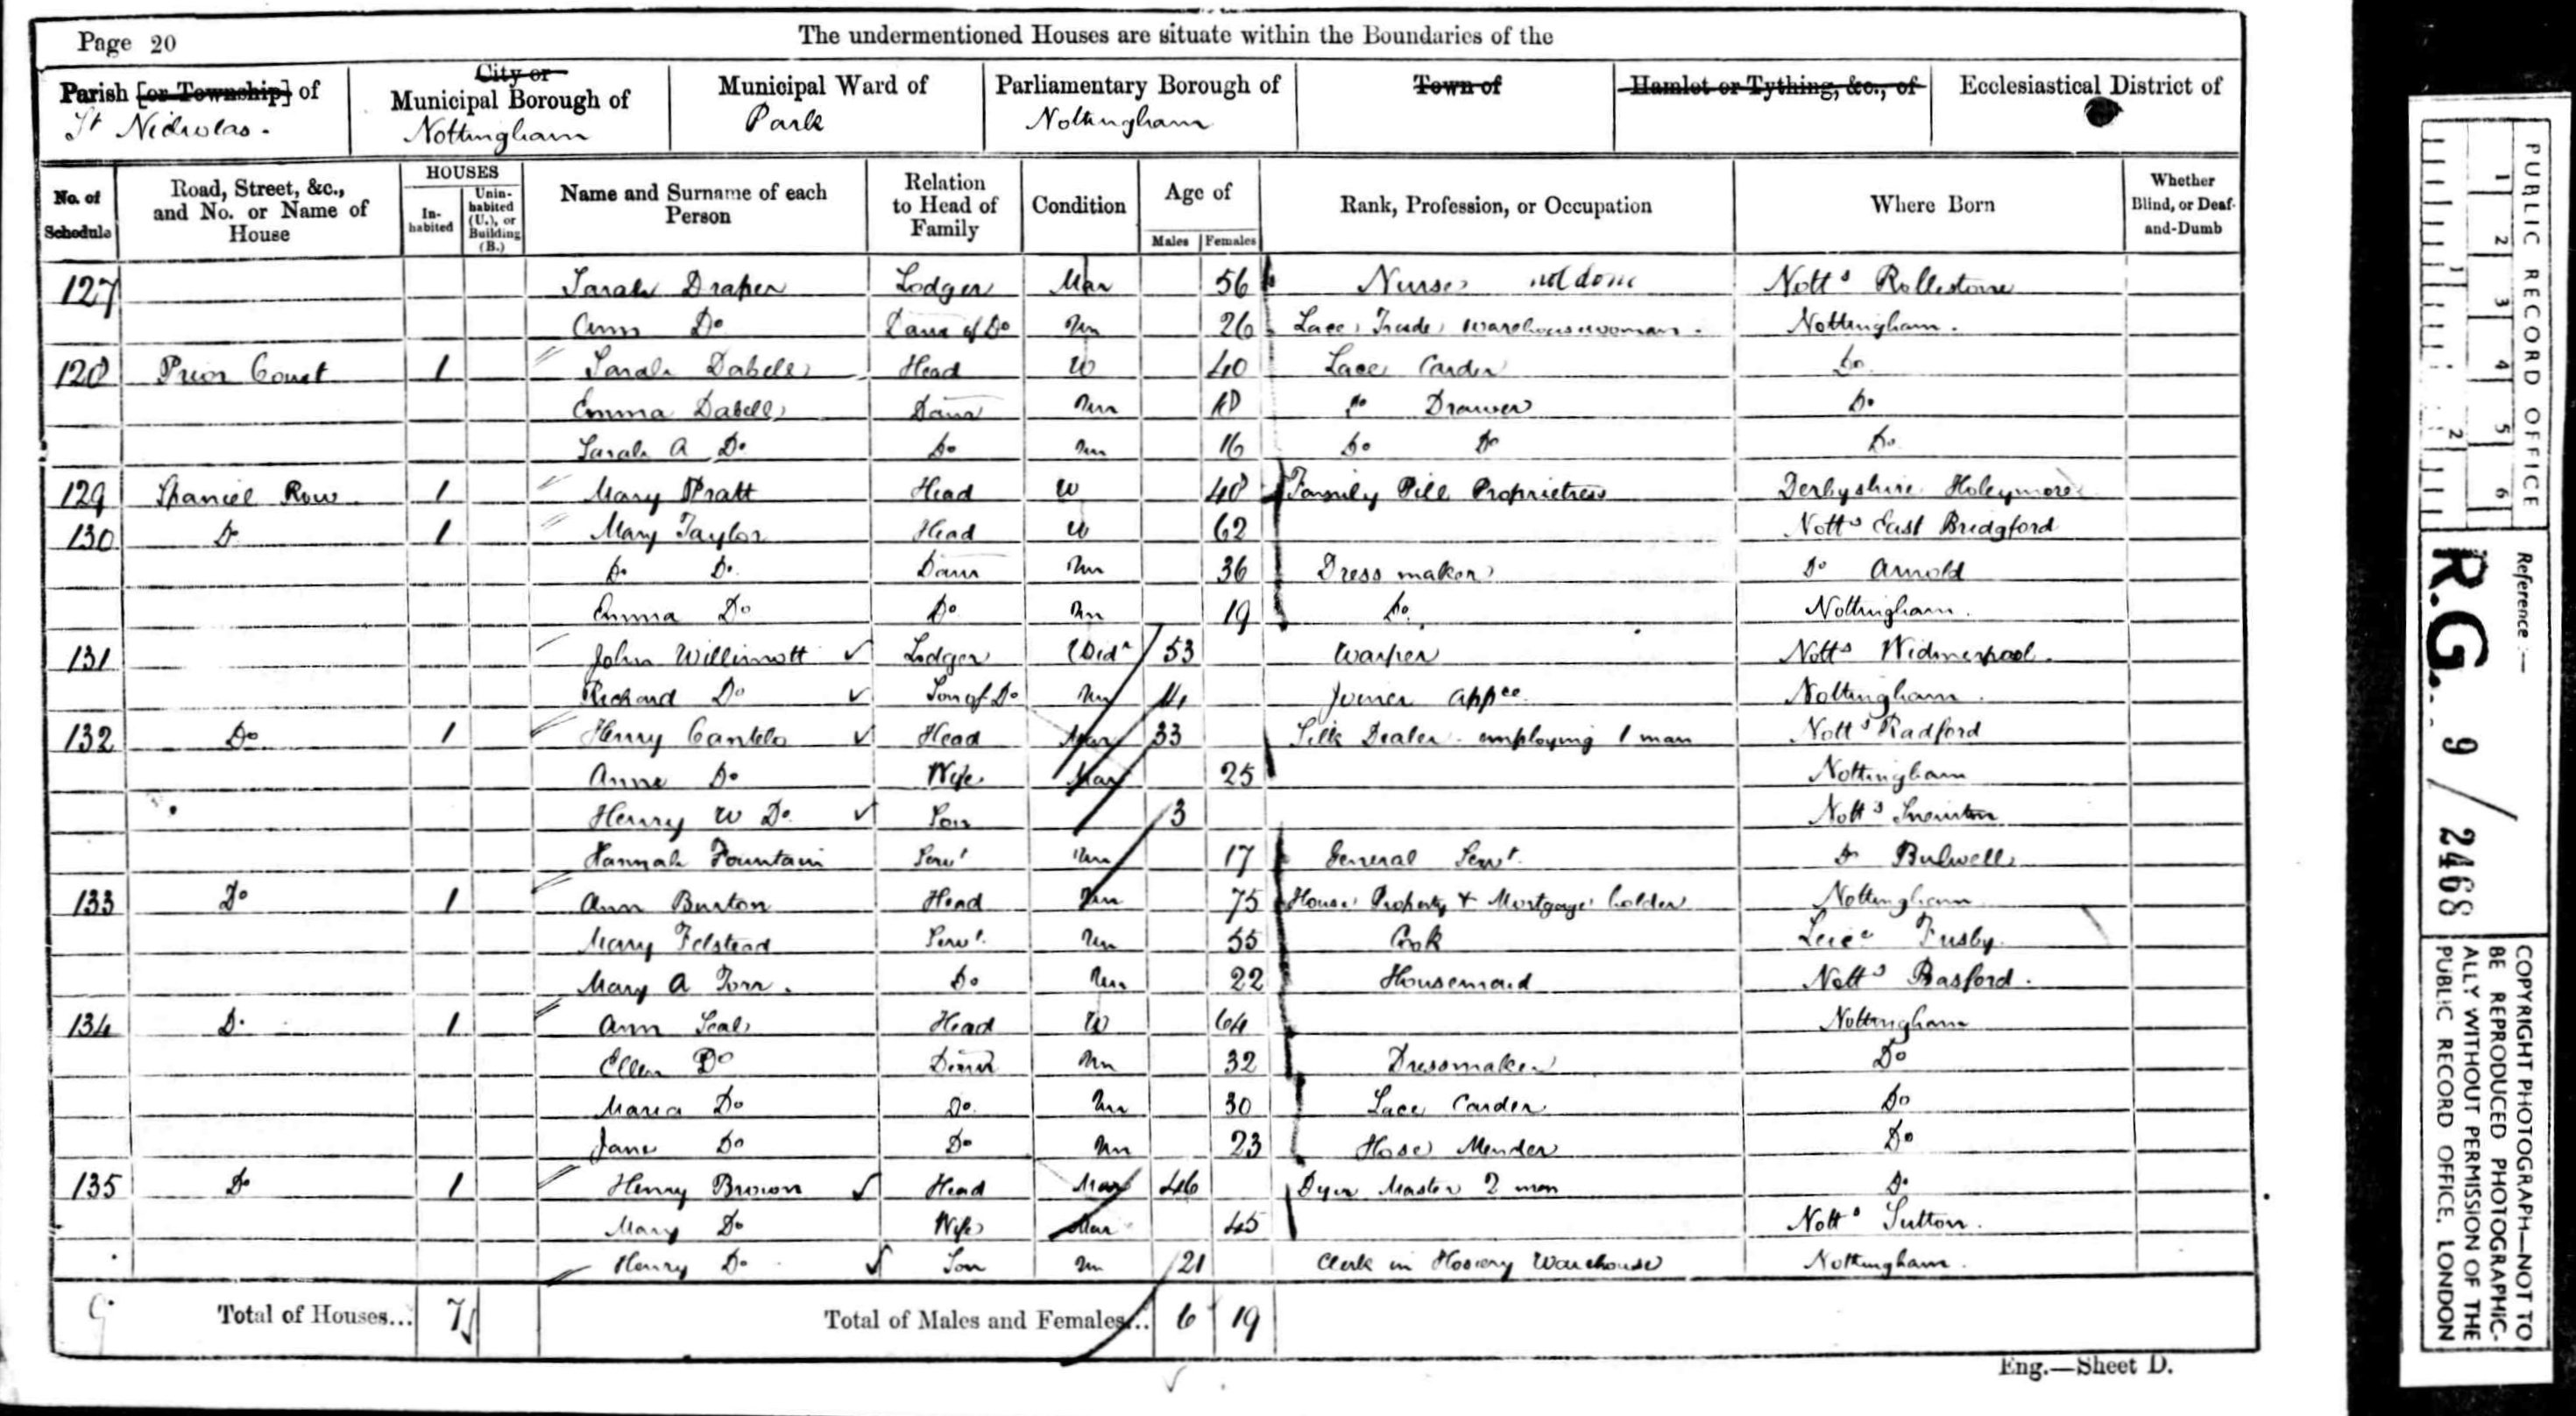 Page 20
The undermentioned Houses are situate within the Boundaries of the
Parish [or Township] of St Nicholas.
City or Municipal Borough of Nottingham
Municipal Ward of Park
Parliamentary Borough of Nottingham
Town of
Hamlet or Tything, &c., of
Ecclesiastical District of
No. of Schedule
Road, Street, &c., and No. or Name of House
HOUSES
In-habited
Unin-habited (U.), or Building (B.)
Name and Surname of each Person
Relation to Head of Family
Condition
Age of
Males Females
Rank, Profession, or Occupation
Where Born
Whether Blind, or Deaf-and-Dumb
127 Sarah Draper Lodger Mar 56 Nurse not dom Notts Rollestone
Ann Do Daur of Do Un 26 Lace Trade warehousewoman. Nottingham.
128 Prior Court 1 Sarah Dabell Head W 40 Lace Carder Do
Emma Dabell Daur Un 18 Do Drawer Do
Sarah A Do Do Un 16 Do Do Do
129 Spaniel Row 1 Mary Pratt Head W 48 Family Pill Proprietress Derbyshire Holeymore
130 Do 1 Mary Taylor Head W 62 Notts East Bridgford
Do Do Daur Un 36 Dress maker Do Arnold
Emma Do Do Un 19 Do Nottingham.
131 John Willimott Lodger Widr 53 Warper Notts Widmerpool.
Richard Do Son of Do Un 14 Joiner appce. Nottingham.
132 Do 1 Henry Cantelo Head Mar 33 Silk Dealer employing 1 man Notts Radford
Anne Do Wife Mar 25 Nottingham
Henry W Do Son 3 Notts Sneinton
Hannah Fountain Servt Un 17 General Servt. Do Bulwell
133 Do 1 Ann Burton Head Un 75 House Property & Mortgage holder Nottingham
Mary Felstead Servt. Un 55 Cook Leice Frisby
Mary A Torr. Do Un 22 Housemaid Notts Basford.
134 Do 1 Ann Seal Head W 64 Nottingham
Ellen Do Daur Un 32 Dressmaker Do
Maria Do Do Un 30 Lace Carder Do
Jane Do Do Un 23 Hose Mender Do
135 Do 1 Henry Brown Head Mar 46 Dyer Master 2 men Do
Mary Do Wife Mar 45 Notts Sutton.
Henry Do Son Un 21 Clerk in Hosiery Warehouse Nottingham.
Total of Houses... 7
Total of Males and Females... 6 19
Eng.—Sheet D.
PUBLIC RECORD OFFICE
1 2 3 4 5 6
1 2
Reference:—
R.G. 9 / 2468
COPYRIGHT PHOTOGRAPH—NOT TO
BE REPRODUCED PHOTOGRAPHIC-
ALLY WITHOUT PERMISSION OF THE
PUBLIC RECORD OFFICE, LONDON